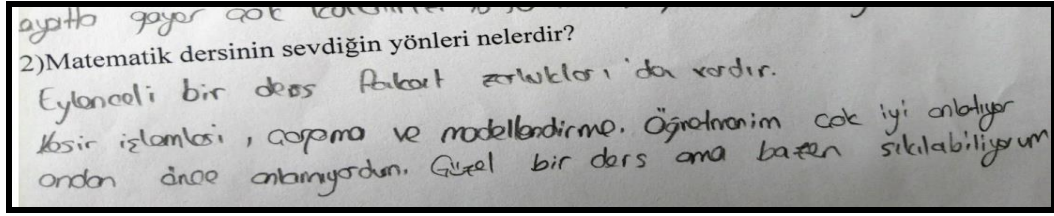 ayatta gayer çok
2)Matematik dersinin sevdiğin yönleri nelerdir?
Eylenceli bir ders Fakat zorlukları 'da vardır.
Kesir işlemleri , çarpma ve modellendirme. Öğretmenim cok iyi anlatıyor
ondan önce anlamıyordum. Güzel bir ders ama bazen sıkılabiliyorum